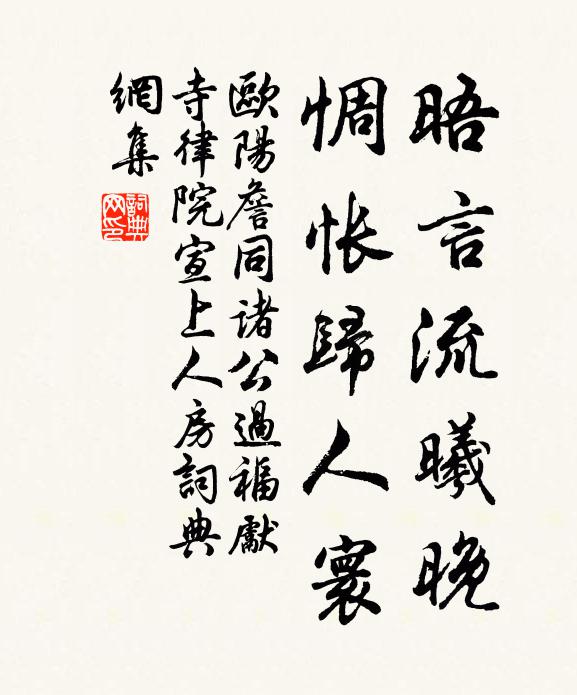 晤言流曦晚
惆怅歸人寰
歐陽詹同諸公過福獻
寺律院宣上人房詞典
網集
詞典
网印